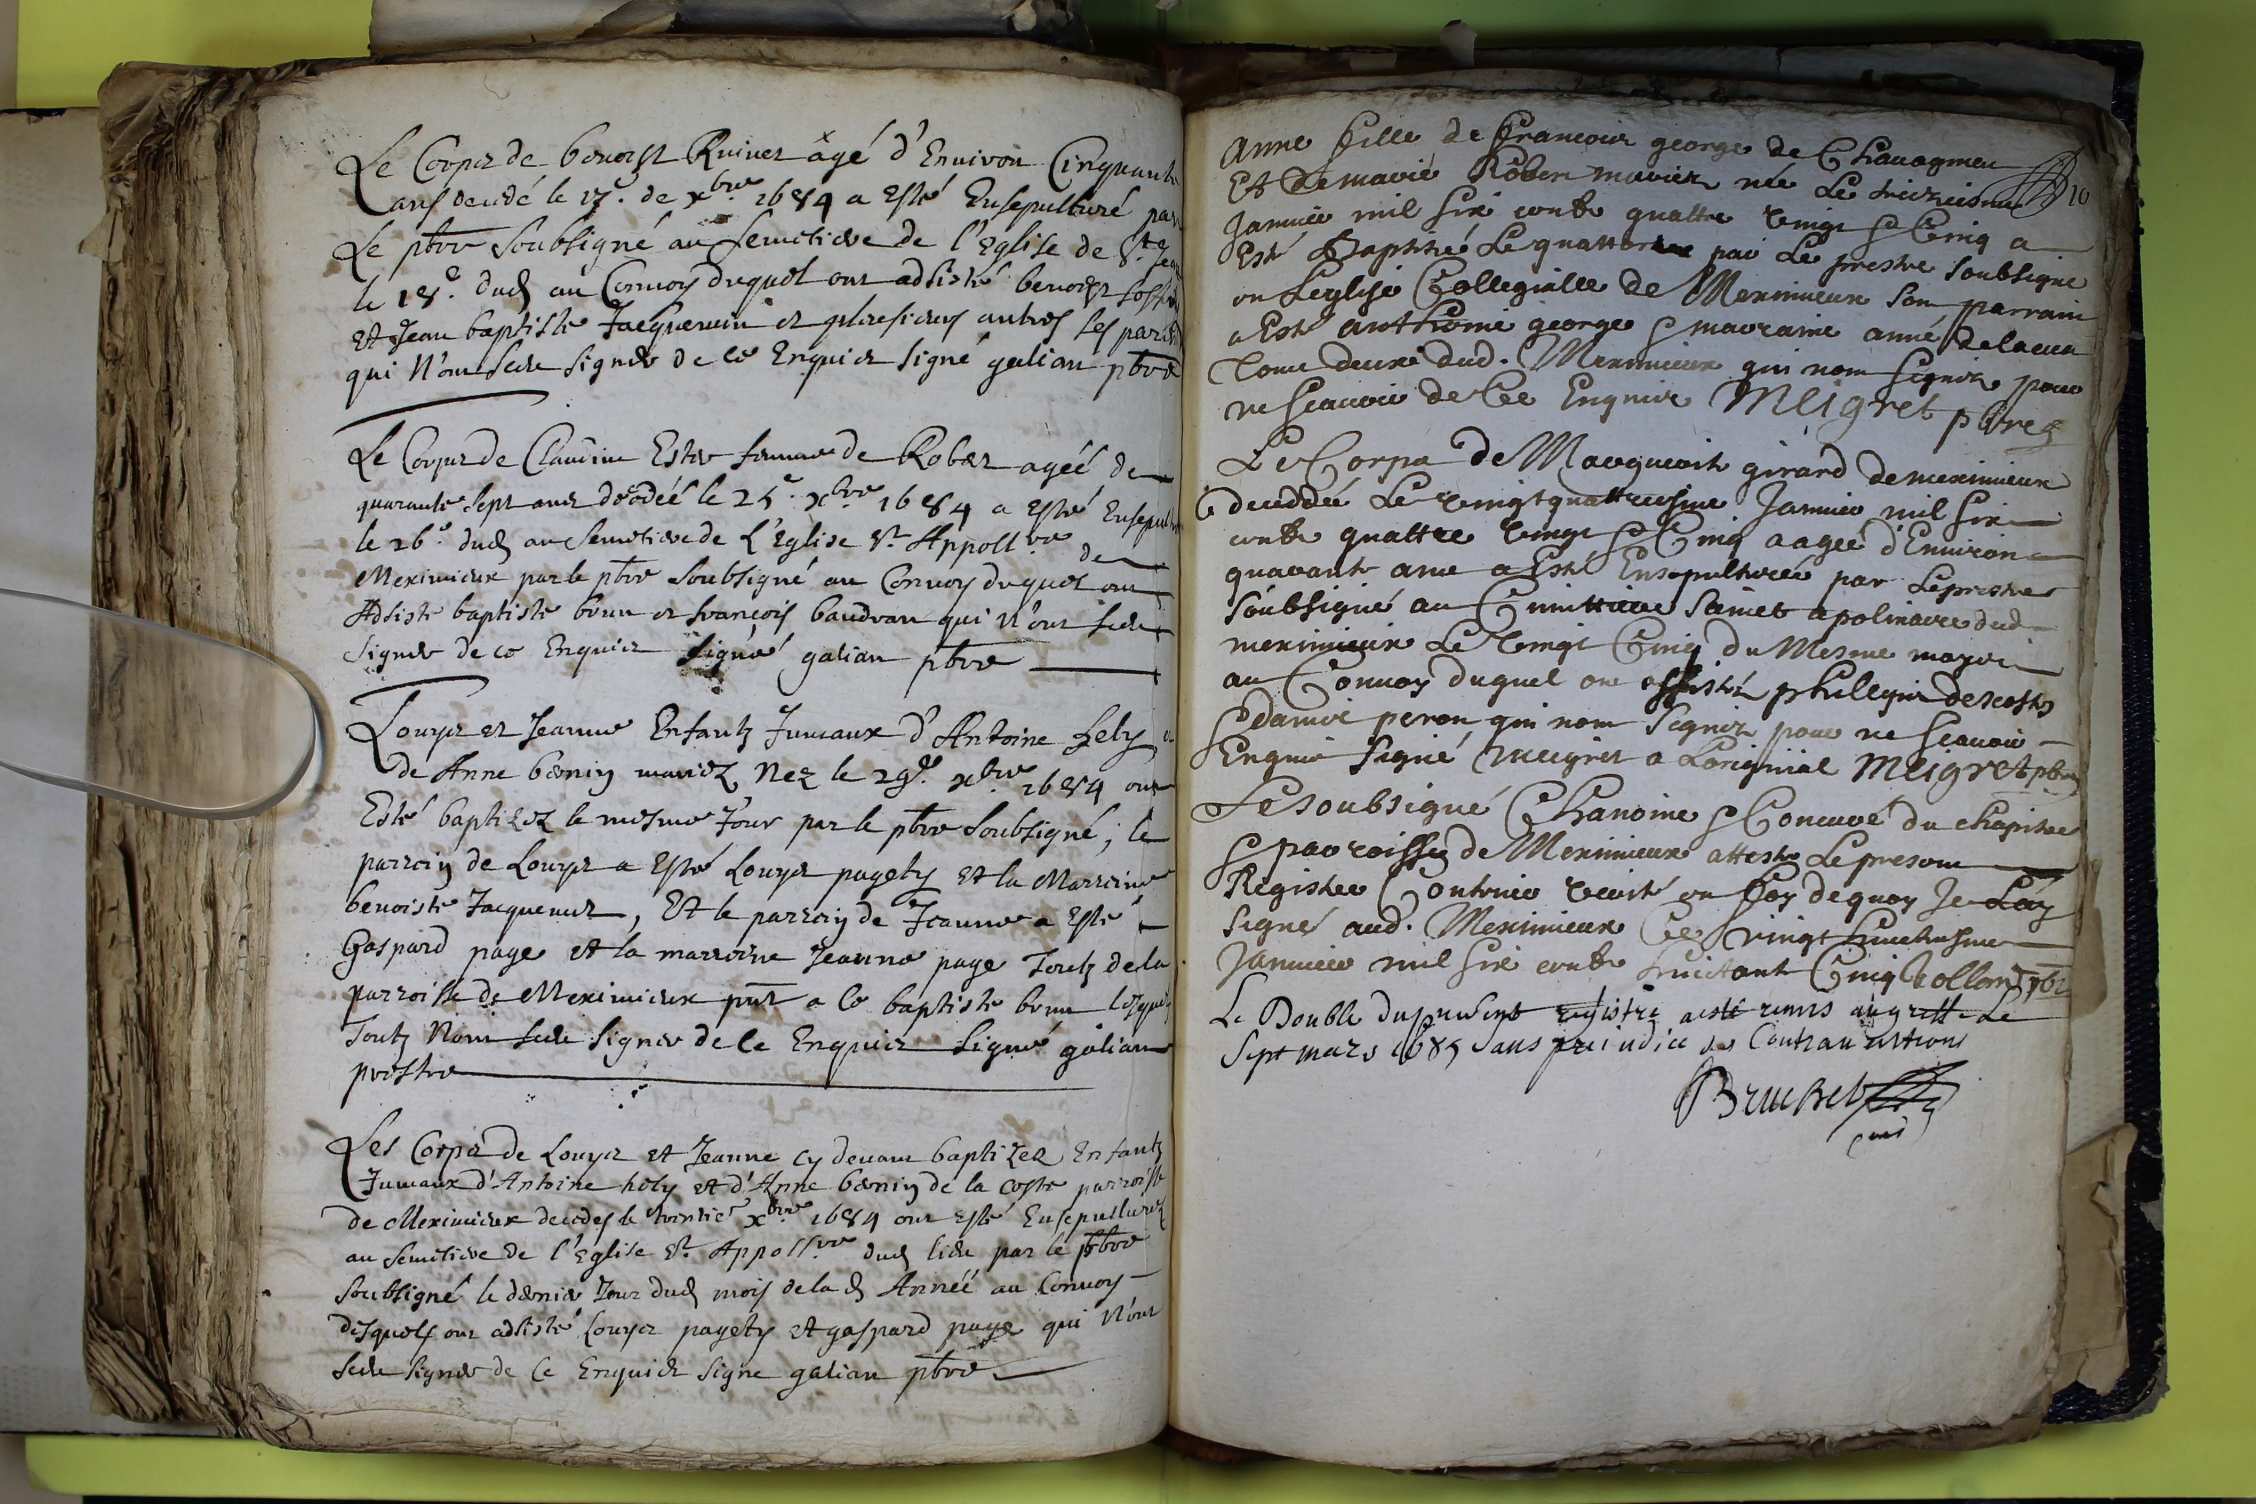 Le Corps de benoist Ruinet âgé d'Enuiron Cinquante
ans decedé le 17e. de xbre. 1684 a Esté Ensepulturé par
Le pbre soubsigné au semetiere de l'Eglise de St. Jean
le 18e. dud au Conuoy duquel ont adsisté benoist
Et Jean baptiste Jacquemin et plusieurs autres ses parens
qui N'ont sceu signer de ce Enquis signé galian pbre
Le Corps de Claudine Ester femme de Rober agéé de
quarante sept ans decedéé le 25e. xbre. 1684 a Esté Ensepul
le 26e. dud au semetiere de L'Eglise St. Appollre de
Meximieux par le pbre soubsigné au Conuoy duquel ont
Adsisté baptiste brun et francois baudran qui N'ont sceu
signer de ce Enquis signé galian pbre
Louys et Jeanne Enfantz Jumaux d'Antoine hely et
de Anne bernin mariez Nez le 29e. xbre. 1684 ont
Esté baptisez le mesme Jour par le pbre soubsigné ; le
parrain de Louys a Esté Louys pagety Et la Marraine
benoiste Jacquemet, Et le parrain de Jeanne a Esté
Gaspard page et la marraine Jeanne page Toutz de la
parroisse de Meximieux pnt a ce baptiste brun lesquels
Toutz Nont sceu signer de ce Enquis signé galian
prestre
Les Corps de Louys et Jeanne cy deuant baptizez Enfantz
Jumaux d'Antoine hely et d'Anne bernin de la coste parroisse
de Meximieux decedes le trentie xbre. 1684 ont esté Ensepulturez
au semetiere de l'Eglise St. Appollre dud lieu par le pbre
soubsigné le dernier Jour dud mois de lad Annéé au Conuoy
desquels ont adsisté Louys pagety et gaspard page qui N'ont
sceu signer de Ce Enquis signe galian pbre
10
Anne fille de francois george de Chauagneu
Et de marie Rober mariez née Le treiziesme
Januier mil six cents quattre vingt & Cinq a
Esté Baptisée Le quattorze par Le prestre soubsigne
en Leglise Collegialle de Meximieux son parrain
a Esté anthoine george & marraine anne
Tous deux dud. Meximieux qui nont signez pour
ne scauoir de Ce Enquis Meigret pbre
Le Corps de Margueritte girard de meximieux
decedée Le vingtquattriesme Januier mil six
cents quattre vingt & Cinq aagée d'Enuiron
quarante ans a Esté Ensepulturée par Le prestre
soubsigné au Cimittiere sainct apolinaire dud
meximieux Le vingt Cinq du Mesme moys
au Conuoy duquel ont assisté phillipe descostes
& damie peron qui nont signez pour ne scauoir
Enquis signé meigret a Loriginal Meigret pbre
Le soubsigné Chanoine & Concuré du chapitre
& parroisse de Meximieux atteste Le present
Registre Contenir verité en foy de quoy Je Lay
signé aud. Meximieux Ce vingt huictiesme
Januier mil six cents huictante Cinq
Le Double du present registre a esté remis au greffe Le
sept mars 1685 sans preiudice des Contrauentions